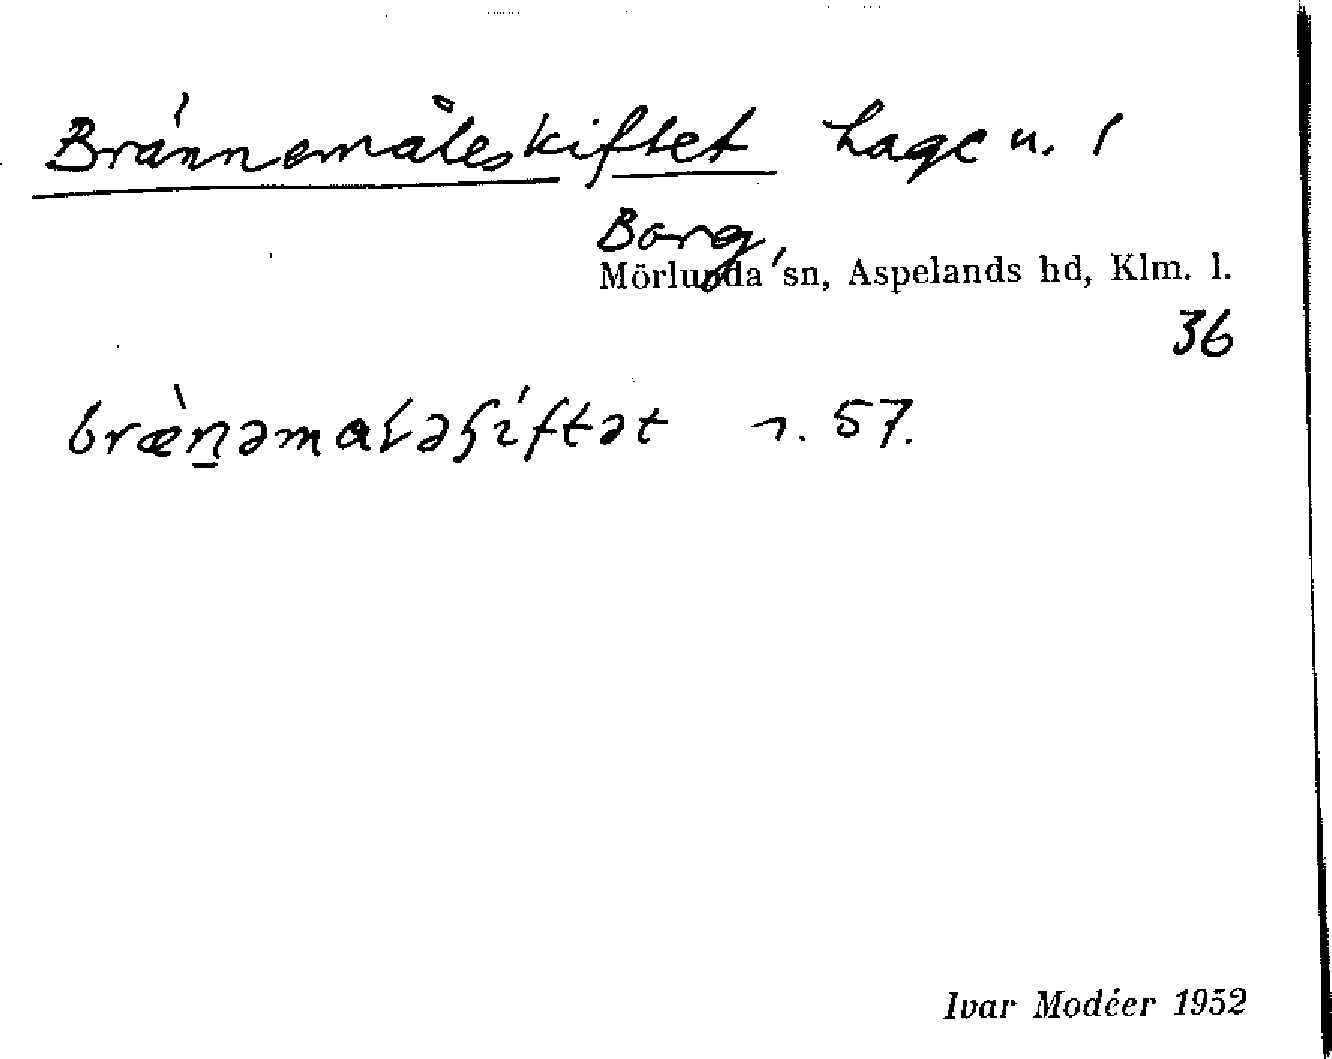 Brännemåleskiftet hage u. 1
Borg,
Mörlunda sn, Aspelands hd, Klm. l.
36
n. 57.
Ivar Modéer 1952